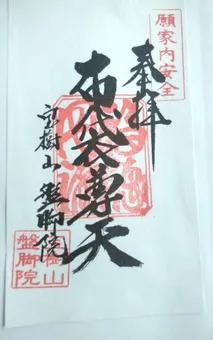 願家内安全
奉拝
布袋尊天
宝樹山 盤脚院
盤脚院